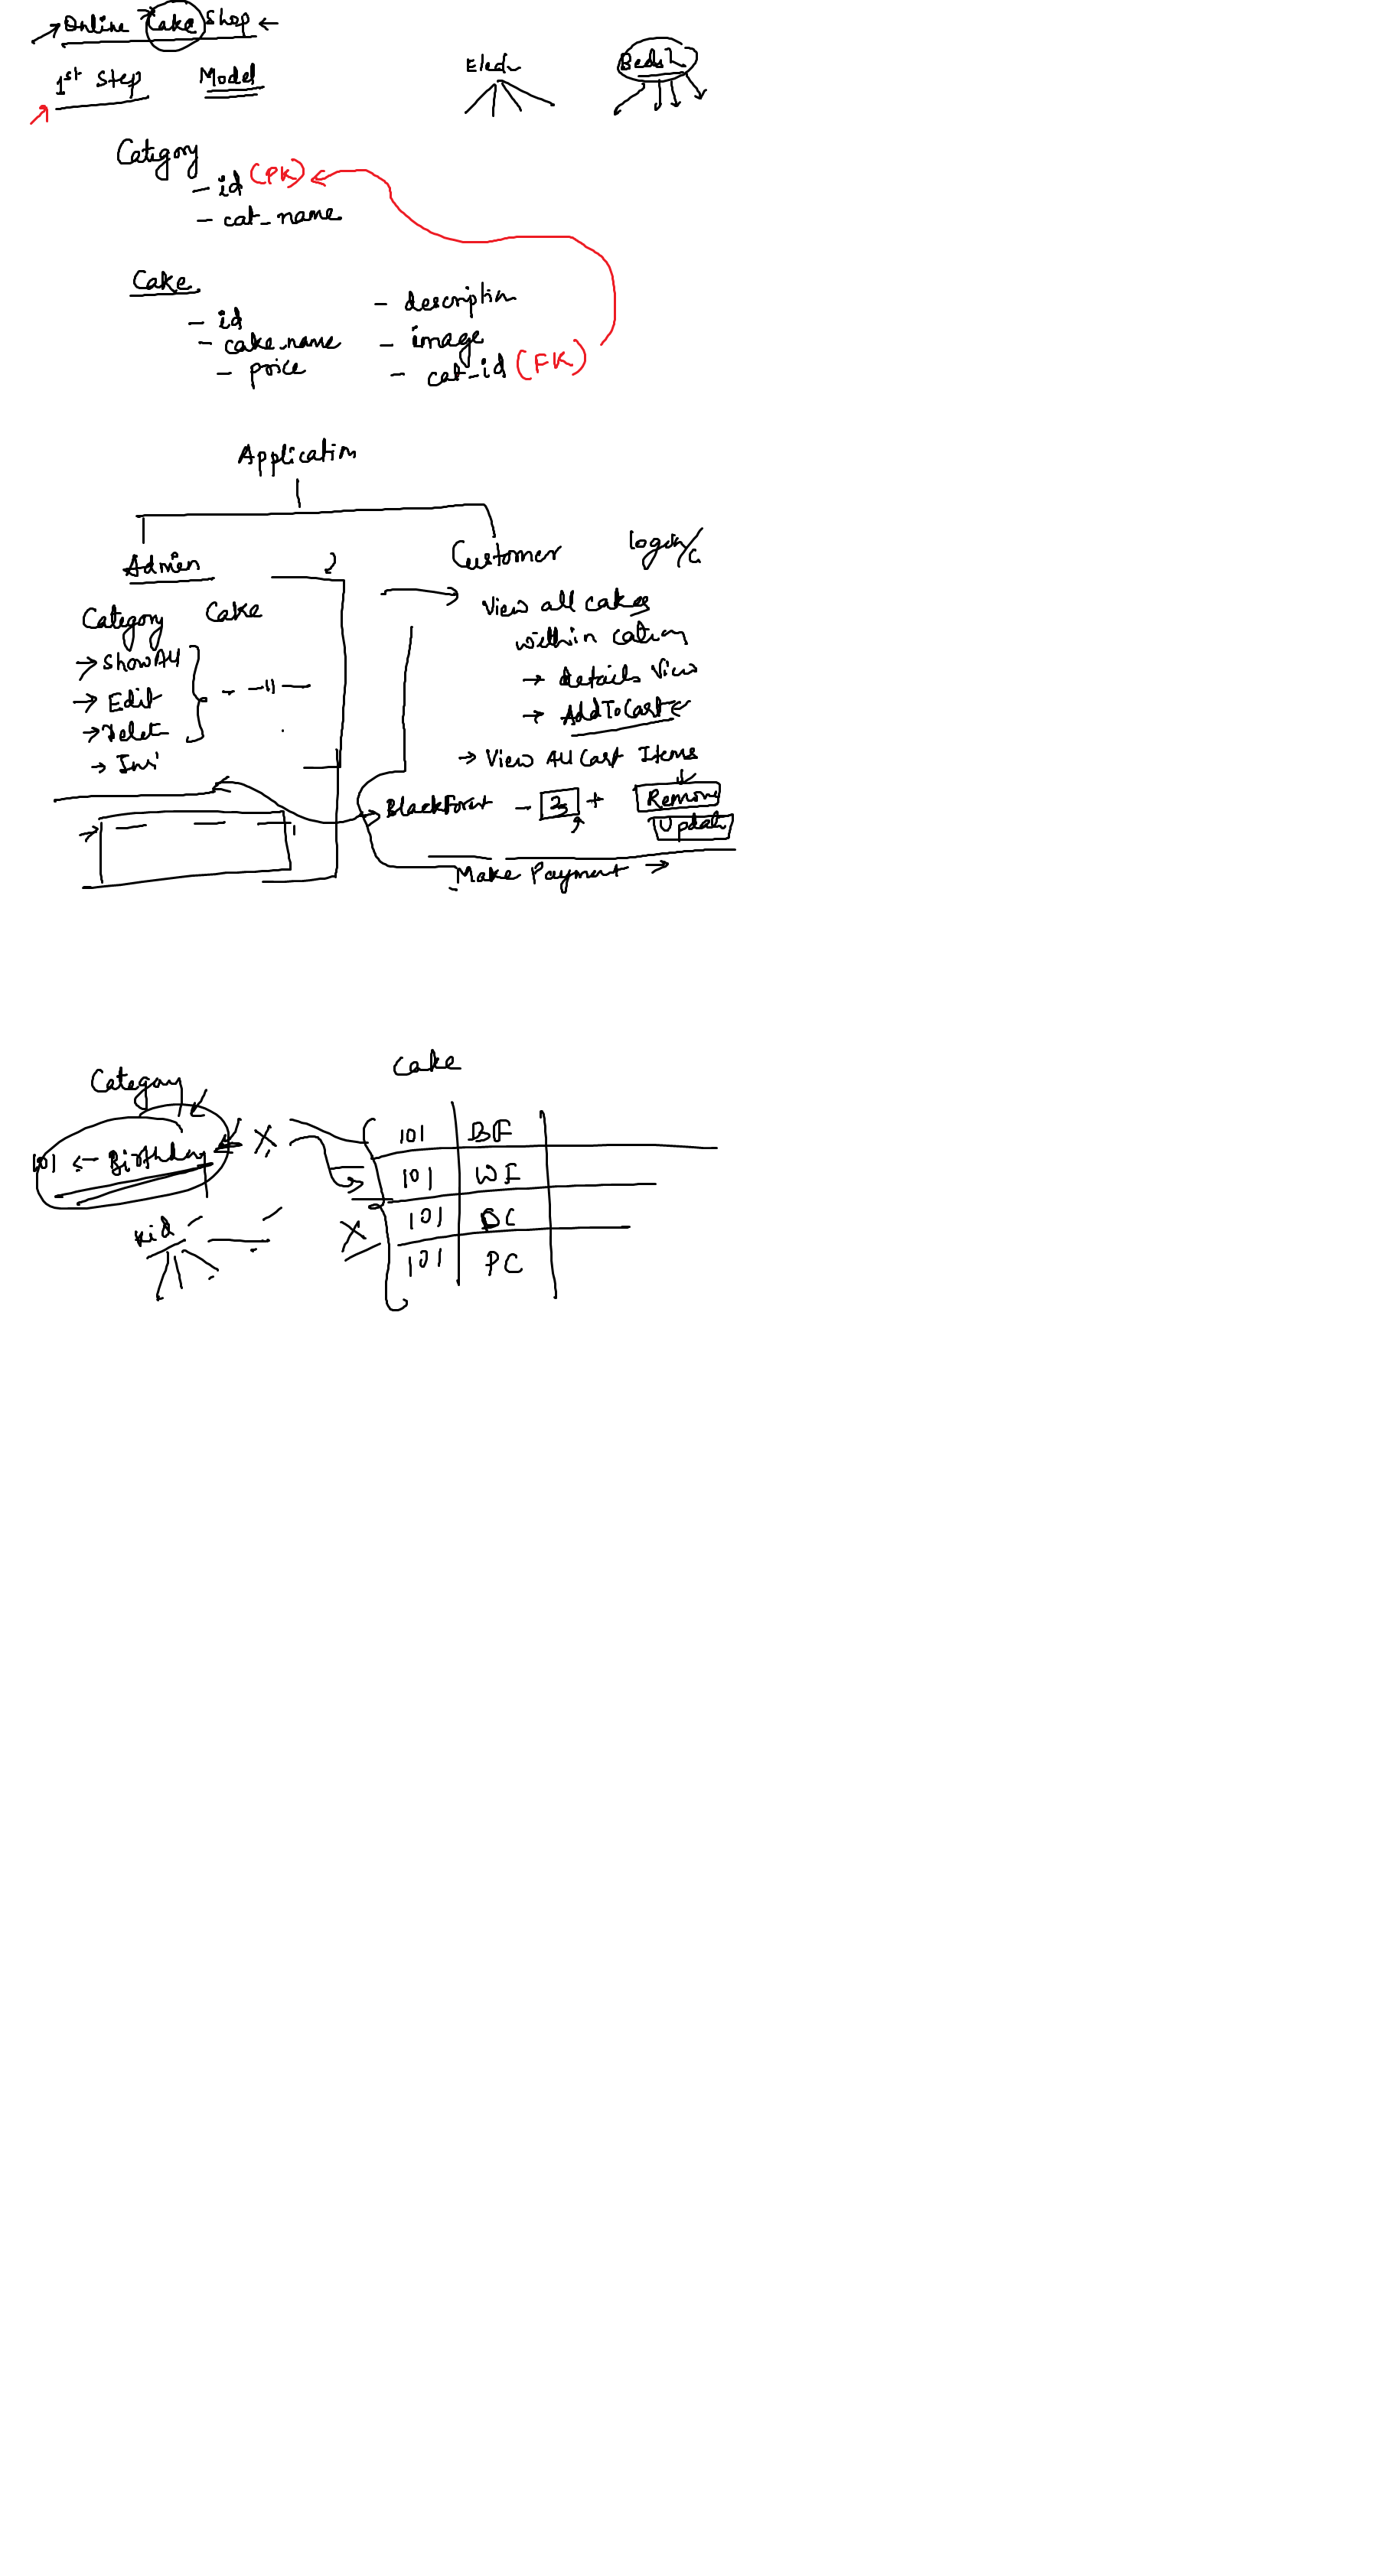 Online Cake Shop
1st Step Model
Category
- id (PK)
- cat_name
Cake
- id
- cake_name
- price
- description
- image
- cat_id (FK)
Application
Admin
Category Cake
→ ShowAll
→ Edit
→ Delet
→ Ins
Customer
View all cakes
within
→ details View
→ AddToCart
→ View All Cart Items
BlackForest - 3 + Remove
Update
Make Payment →
Category
101 ← Birthday
Kid
Cake
101 BF
101 WF
101 DC
101 PC
X
X